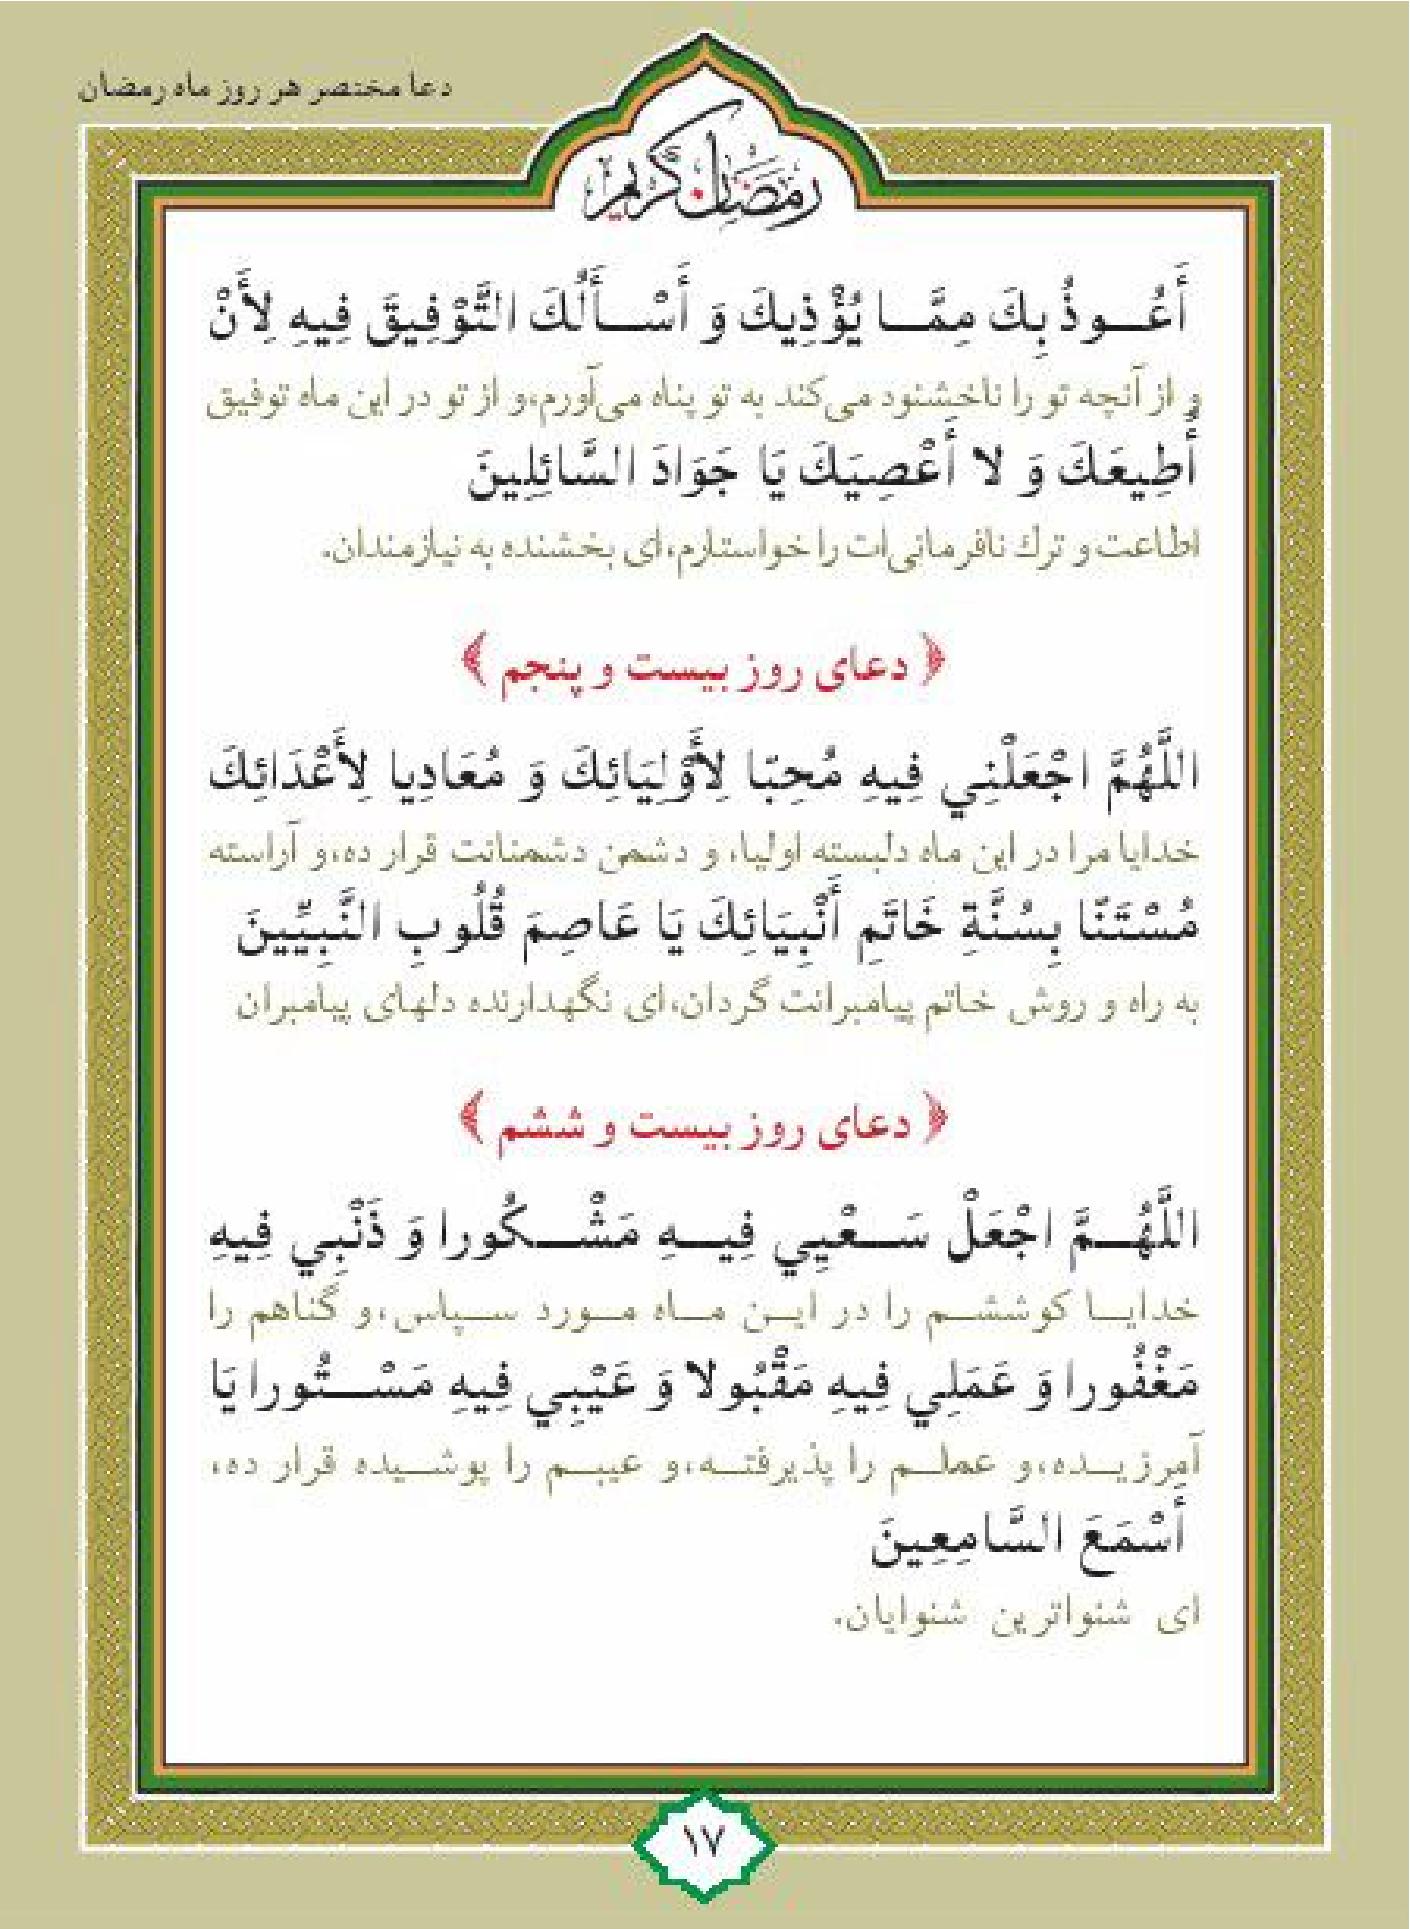 دعا مختصر هر روز ماه رمضان
رمضان كريم
أَعُــوذُ بِكَ مِمَّــا يُؤْذِيكَ وَ أَسْــأَلُكَ التَّوْفِيقَ فِيهِ لِأَنْ
و از آنچه تو را ناخشنود می‌کند به تو پناه می‌آورم،و از تو در این ماه توفیق
أُطِيعَكَ وَ لا أَعْصِيَكَ يَا جَوَادَ السَّائِلِينَ
اطاعت و ترك نافرمانی‌ات را خواستارم،ای بخشنده به نیازمندان.
﴿ دعای روز بیست و پنجم ﴾
اللَّهُمَّ اجْعَلْنِي فِيهِ مُحِبّا لِأَوْلِيَائِكَ وَ مُعَادِيا لِأَعْدَائِكَ
خدایا مرا در این ماه دلبسته اولیا، و دشمن دشمنانت قرار ده،و آراسته
مُسْتَنّا بِسُنَّةِ خَاتَمِ أَنْبِيَائِكَ يَا عَاصِمَ قُلُوبِ النَّبِيِّينَ
به راه و روش خاتم پیامبرانت گردان،ای نگهدارنده دلهای پیامبران
﴿ دعای روز بیست و ششم ﴾
اللَّهُــمَّ اجْعَلْ سَــعْيِي فِيــهِ مَشْــكُورا وَ ذَنْبِي فِيهِ
خدایــا کوششــم را در ایــن مــاه مــورد ســپاس،و گناهم را
مَغْفُورا وَ عَمَلِي فِيهِ مَقْبُولا وَ عَيْبِي فِيهِ مَسْــتُورا يَا
آمرزیــده،و عملــم را پذیرفتــه،و عیبــم را پوشــیده قرار ده،
أَسْمَعَ السَّامِعِينَ
ای شنواترین شنوایان.
۱۷